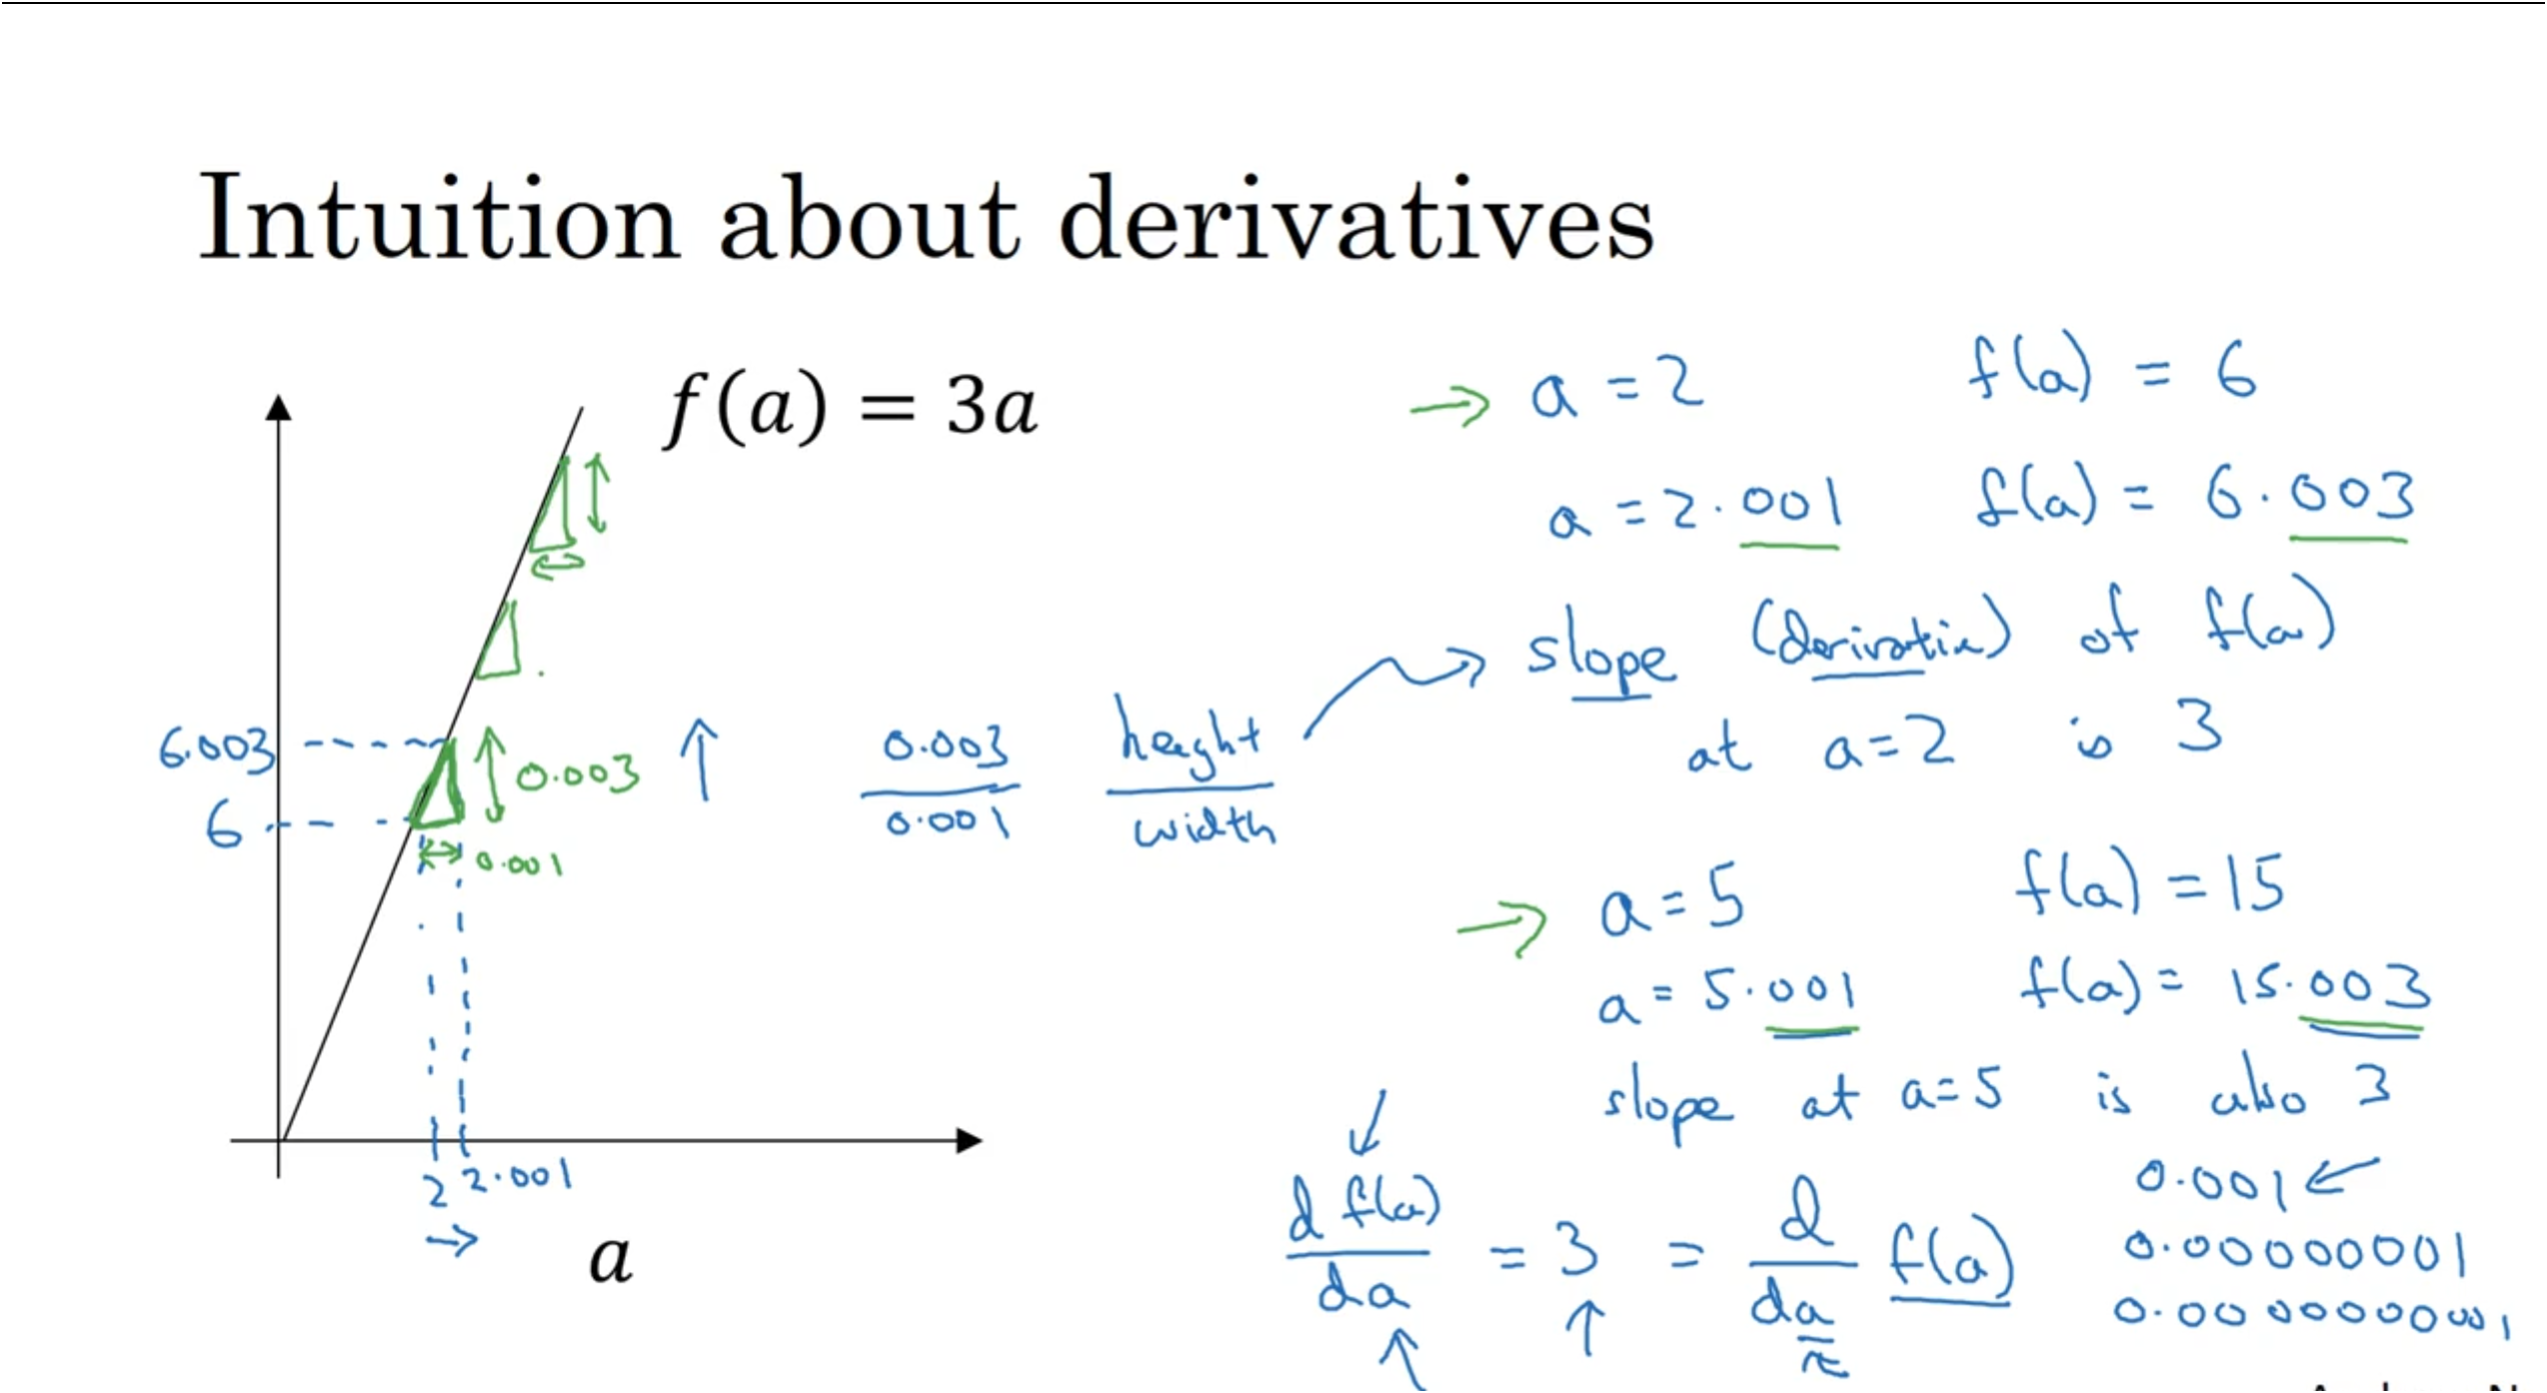 Intuition about derivatives
f(a) = 3a
6.003
6
0.003
0.001
2 2.001
a
0.003 / 0.001
height / width
a = 2 f(a) = 6
a = 2.001 f(a) = 6.003
slope (derivative) of f(a)
at a=2 is 3
a = 5 f(a) = 15
a = 5.001 f(a) = 15.003
slope at a=5 is also 3
d f(a) / da = 3 = d / da f(a)
0.001
0.00000001